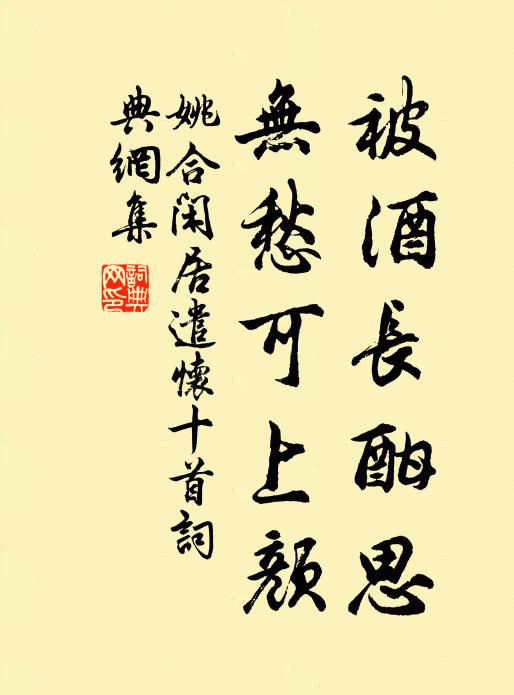 被酒長酣思
無愁可上顏
姚合閑居遣懷十首詞
典網集
詞典
网印